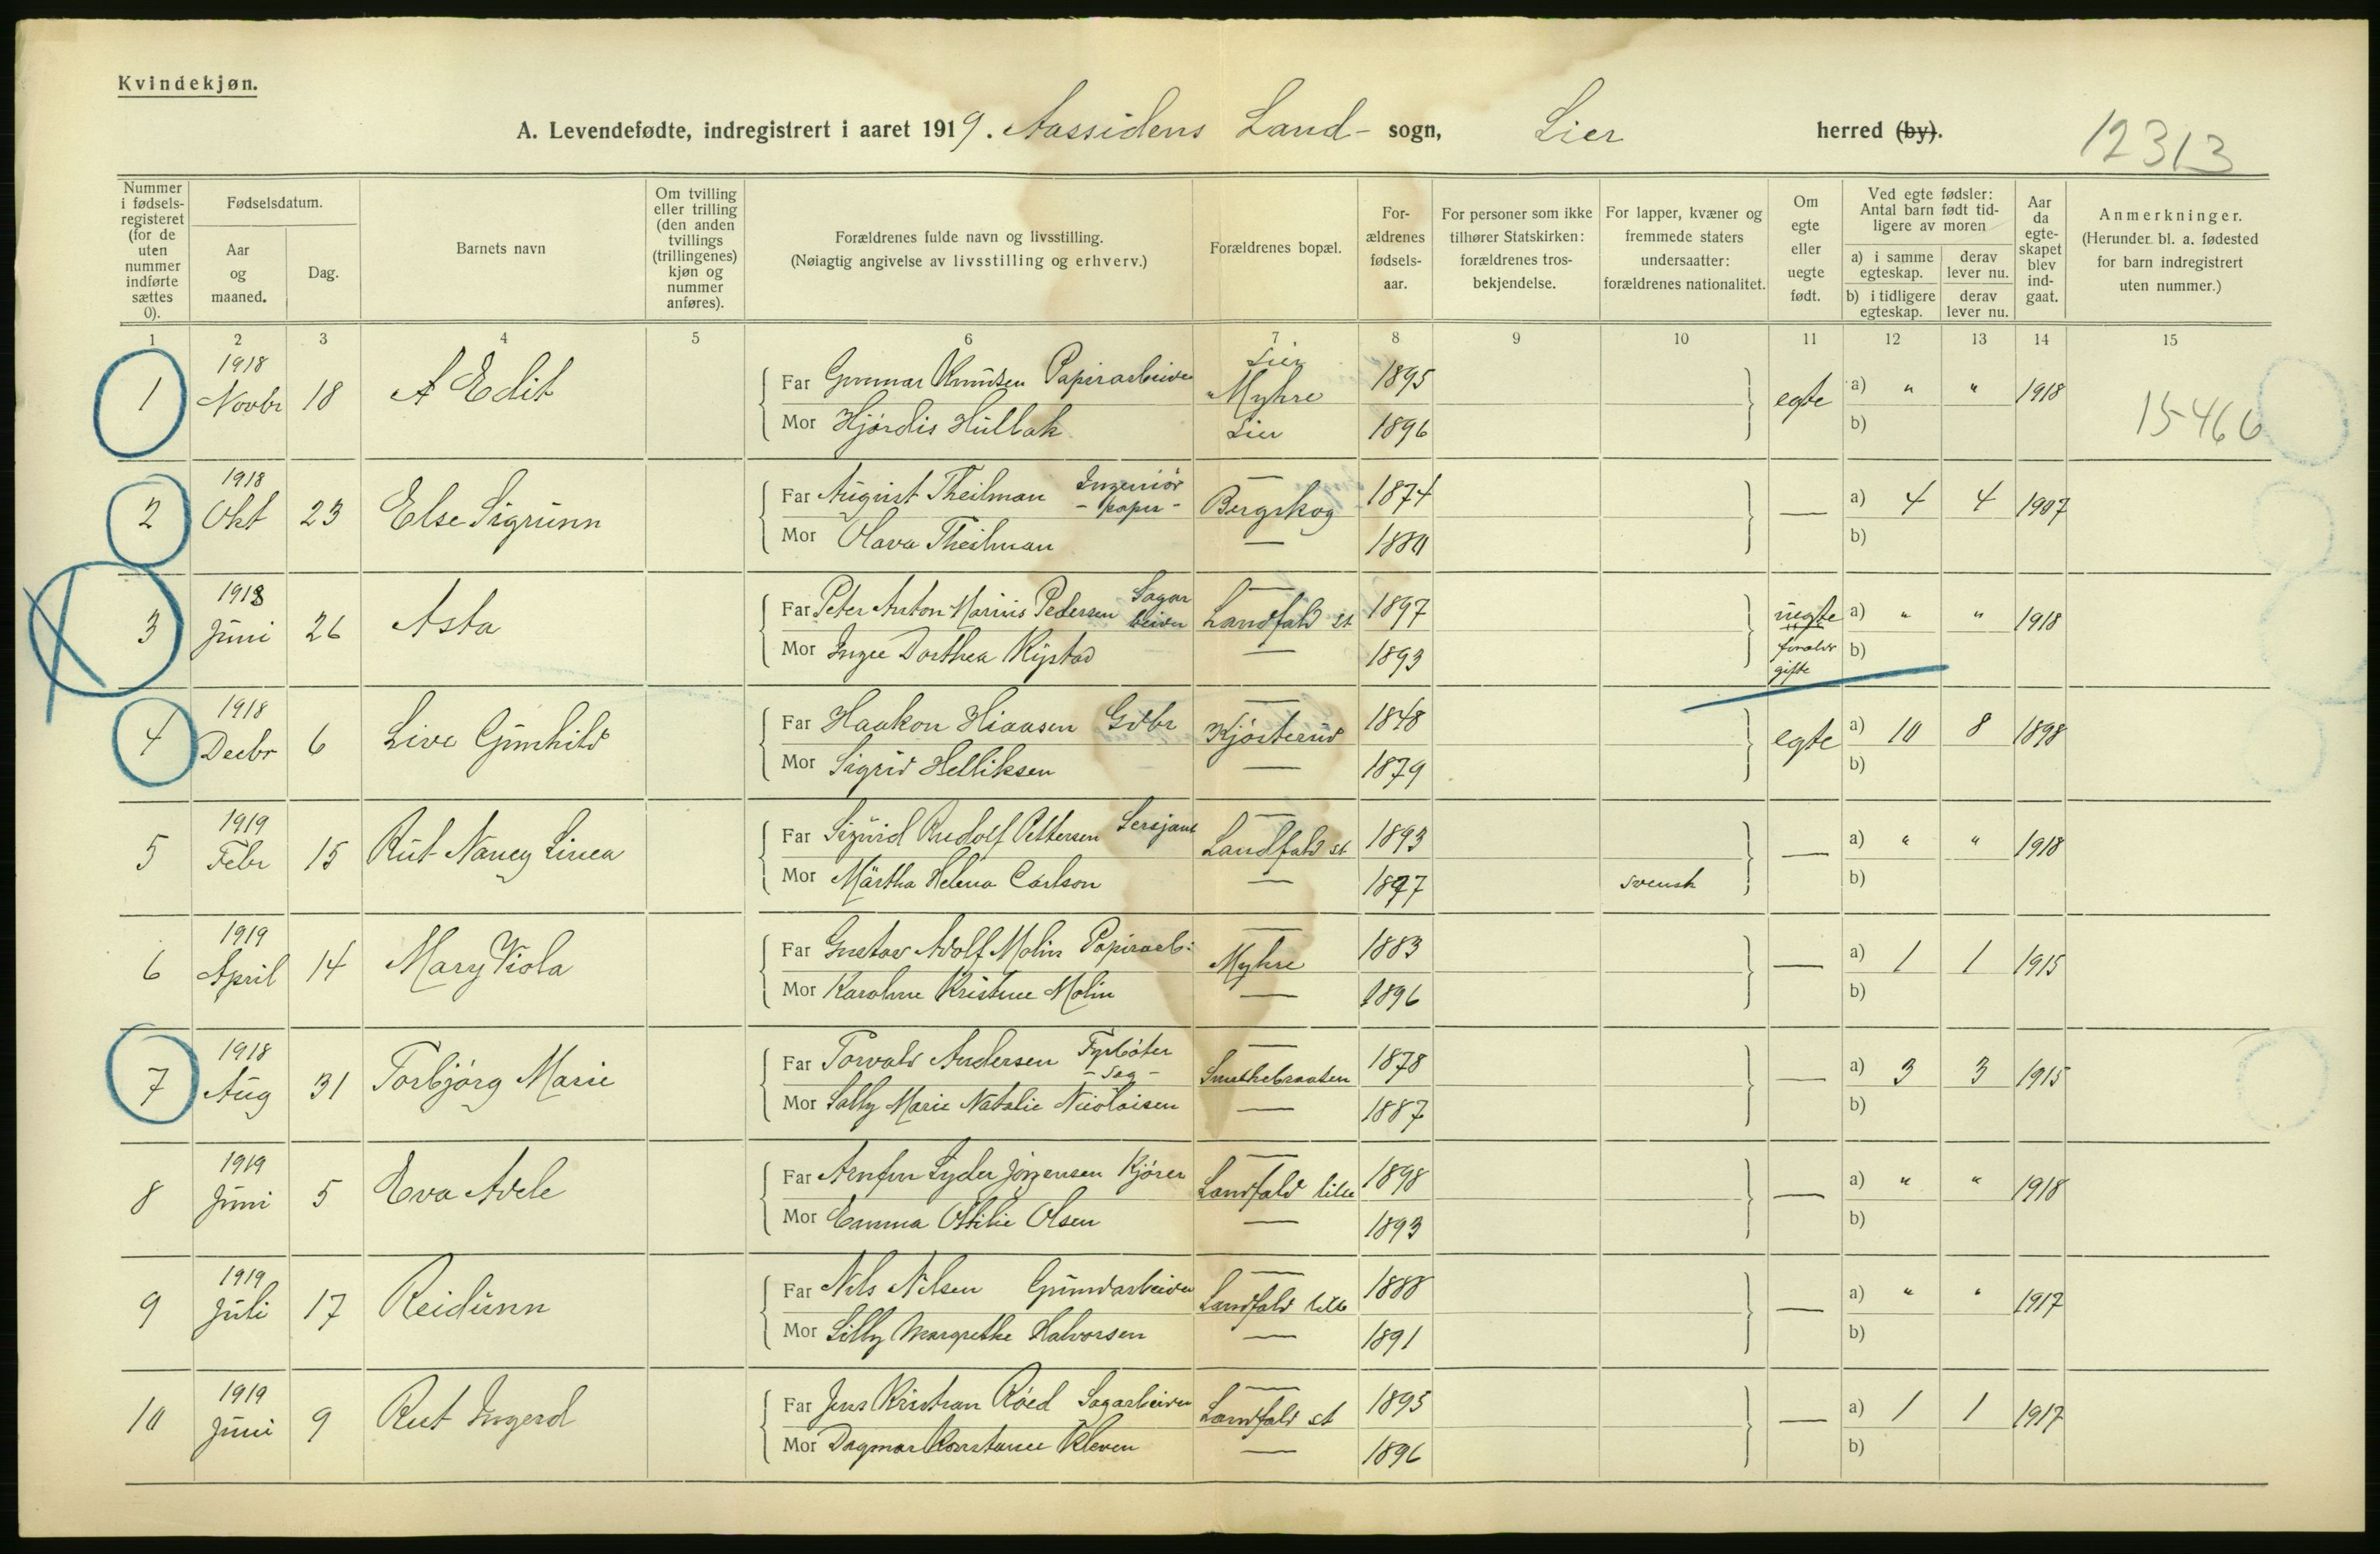 Kvindekjøn.
A. Levendefødte, indregistrert i aaret 1919. Aassidens Land- sogn, Lier herred (by).
12313
Nummer i fødselsregisteret (for de uten nummer indførte sættes 0).
Fødselsdatum.
Aar og maaned.
Dag.
Barnets navn
Om tvilling eller trilling (den anden tvillings (trillingenes) kjøn og nummer anføres).
Forældrenes fulde navn og livsstilling.
(Nøiagtig angivelse av livsstilling og erhverv.)
Forældrenes bopæl.
Forældrenes fødselsaar.
For personer som ikke tilhører Statskirken: forældrenes trosbekjendelse.
For lapper, kvæner og fremmede staters undersaatter: forældrenes nationalitet.
Om egte eller uegte født.
Ved egte fødsler: Antal barn født tidligere av moren
a) i samme egteskap.
derav lever nu.
b) i tidligere egteskap.
derav lever nu.
Aar da egteskapet blev indgaat.
Anmerkninger.
(Herunder bl. a. fødested for barn indregistrert uten nummer.)
1 2 3 4 5 6 7 8 9 10 11 12 13 14 15
1 1918 Novbr 18 A Edit
Far Gunnar Knudsen Papirarbeider Lier Myhre 1895
Mor Hjørdis Hullak Lier 1896
egte a) " " 1918
b)
15466
2 1918 Okt 23 Else Sigrunn
Far August Theilman Ingeniør - papir - — Bergskog 1874
Mor Olava Theilman — 1880
— a) 4 4 1907
b)
3 1918 Juni 26 Asta
Far Peter Anton Marius Pedersen Sagarbeider — Landfald st 1897
Mor Inga Dorthea Rystad — 1893
uegte foreldr gifte a) " " 1918
b)
4 1918 Decbr 6 Live Gunhild
Far Haakon Hiaasen Gdbr — Kjøsterud 1848
Mor Sigrid Helliksen — 1879
egte a) 10 8 1898
b)
5 1919 Febr 15 Rut Nancy Linea
Far Sigurd Rudolf Pettersen Sersjant — Landfald st 1893
Mor Märtha Helena Carlson — 1897 svensk
— a) " " 1918
b)
6 1919 April 14 Mary Viola
Far Gustav Adolf Molin Papirarb: — Myhre 1883
Mor Karoline Kristine Molin — 1896
— a) 1 1 1915
b)
7 1918 Aug 31 Torbjørg Marie
Far Torvald Andersen Fyrbøter - Sag - — Smithebraaten 1878
Mor Sally Marie Natalie Nicolaisen — 1887
— a) 3 3 1915
b)
8 1919 Juni 5 Eva Adele
Far Arnfin Lyder Jørgensen Kjører — Landfald lille 1898
Mor Emma Ottilie Olsen — 1893
— a) " " 1918
b)
9 1919 Juli 17 Reidunn
Far Nils Nilsen Grundarbeider — Landfald lille 1888
Mor Lilly Margrethe Halvorsen — 1891
— a) " " 1917
b)
10 1919 Juni 9 Rut Ingerd
Far Jens Kristian Røed Sagarbeider — Landfald st 1895
Mor Dagmar Konstance Kleven — 1896
— a) 1 1 1917
b)